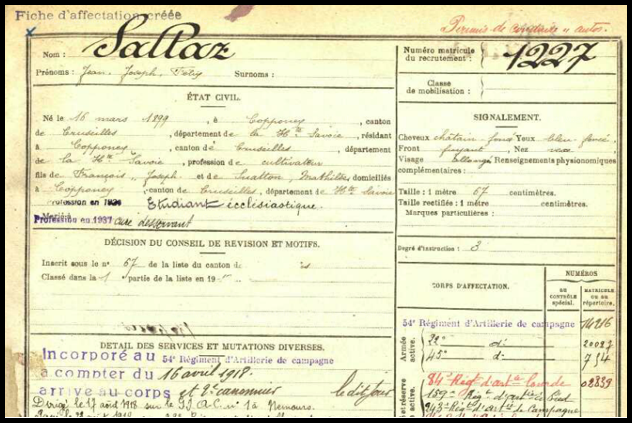 Fiche d'affectation créée
Permis de conduire "autos"
Nom : Sallaz
Prénoms : Jean Joseph Félix Surnoms :
Numéro matricule du recrutement : 1227
Classe de mobilisation :
ÉTAT CIVIL.
Né le 16 mars 1899, à Copponex, canton
de Cruseilles, département de la Hte Savoie, résidant
à Copponex, canton de Cruseilles, département
de la Hte Savoie, profession de cultivateur
fils de François Joseph et de Mathilde, domiciliés
à Copponex, canton de Cruseilles, département de Hte Savoie
Profession en 1926 Etudiant ecclésiastique.
Profession en 1937 curé desservant
Marié
SIGNALEMENT.
Cheveux châtain foncé Yeux bleu foncé
Front fuyant Nez
Visage allongé Renseignements physionomiques
complémentaires :
Taille : 1 mètre 67 centimètres.
Taille rectifiée : 1 mètre centimètres.
Marques particulières :
Degré d'instruction : 3
DÉCISION DU CONSEIL DE REVISION ET MOTIFS.
Inscrit sous le n° 67 de la liste du canton de
Classé dans la 1 partie de la liste en 19
DÉTAIL DES SERVICES ET MUTATIONS DIVERSES.
Incorporé au 54e Régiment d'Artillerie de campagne
à compter du 16 avril 1918.
arrivé au corps et 2e canonnier le dit jour
Dirigé le 17 août 1918 sur le
CORPS D'AFFECTATION.
NUMÉROS
DE CONTRÔLE SPÉCIAL.
MATRICULE OU DE RÉPERTOIRE.
Armée active.
54e Régiment d'Artillerie de campagne 14216
d°
45e d° 754
84e Régt d'artie Lourde 02839
et réserve active.
159e Régt d'artie à Pied
243e Régt d'artie de Campagne